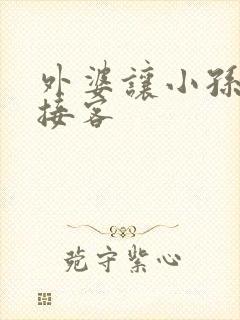 外婆讓小孫
接客
菀守紫心